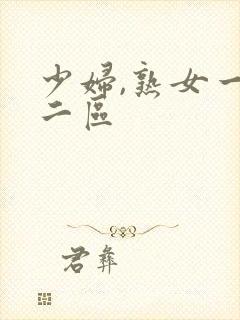 少婦,熟女一
二區
君彝